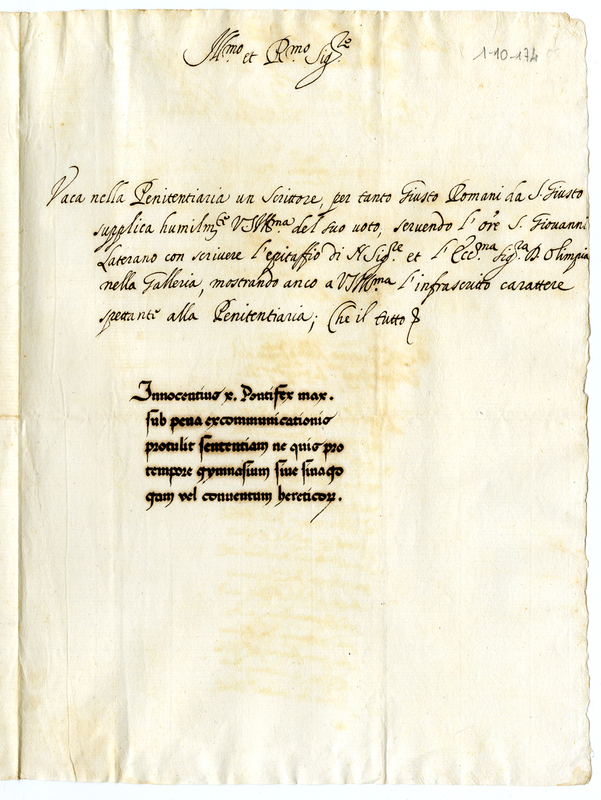 Ill.mo et R.mo Sig.re
1-10-174
Vaca nella Penitentiaria un Scrittore, per tanto Giusto Romani da S. Giusto
supplica humilm.te V S Ill.ma del suo voto, servendo l'ore S. Giovanni
Laterano con scrivere l'epitaffio di N. Sig.re et l'Ecc.ma Sig.ra D Olimpia
nella Galleria, mostrando anco a V S Ill.ma l'infrascritto carattere
spettante alla Penitentiaria; Che il tutto
Innocentius x. Pontifex max.
sub pena excommunicationis
protulit sententiam ne quis pro
tempore gymnasium siue sinago
gam vel conuentum hereticoꝝ.